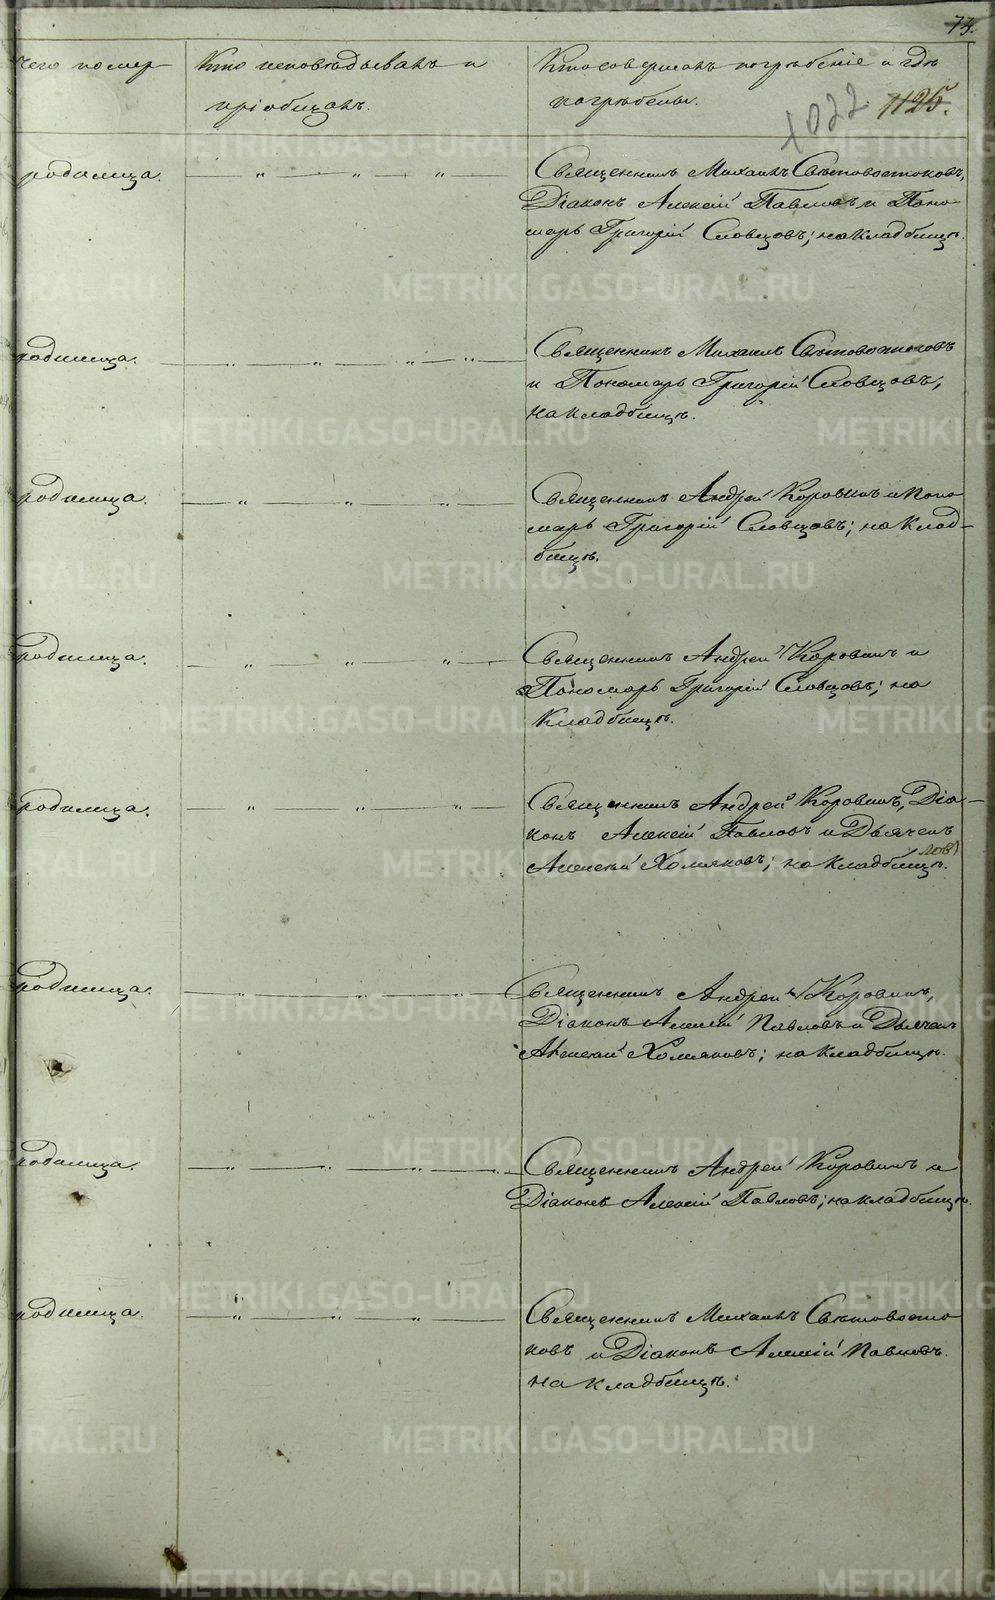 73.
чего помер
Кто исповѣдывалъ и
пріобщалъ.
Кто совершалъ погрѣбеніе и гдѣ
погрѣбены.
1022 1125.
родимица.
Священникъ Михаилъ Свѣтовостоковъ,
Діаконъ Алексій Павловъ и Поно-
марь Григорій Словцовъ; на кладбищѣ.
родимица.
Священникъ Михаилъ Свѣтовостоковъ
и Пономарь Григорій Словцовъ,
на кладбищѣ.
родимица.
Священникъ Андрей Коровинъ и Поно
марь Григорій Словцовъ; на клад-
бищѣ.
родимица.
Священникъ Андрей Коровинъ и
Пономарь Григорій Словцовъ; на
кладбищѣ.
родимица.
Священникъ Андрей Коровинъ, Діа-
конъ Алексій Павловъ и Дьячекъ
Алексѣй Холмяковъ; на кладбищѣ.
родимица.
Священникъ Андрей Коровинъ,
Діаконъ Алексій Павловъ и Дьячекъ
Алексѣй Холмяковъ; на кладбищѣ.
родимица.
Священникъ Андрей Коровинъ и
Діаконъ Алексій Павловъ; на кладбищѣ.
родимица.
Священникъ Михаилъ Свѣтовосто
ковъ и Діаконъ Алексій Павловъ.
на кладбищѣ.
METRIKI.GASO-URAL.RU